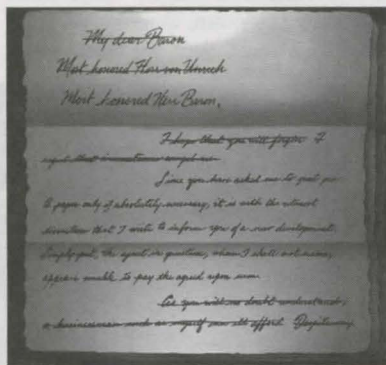 My dear Baron
Most honored Herr von Unruh
Most honored Herr Baron,
I hope that you will forgive I
regret that compel me
Since you have asked me to put pen
to paper only if absolutely necessary, it is with the utmost
discretion that I write to inform you of a new development.
Simply put, the agent in question, whom I shall not name,
appears unable to pay the agreed upon sum.
As you will no doubt understand,
a businessman such as myself can ill afford